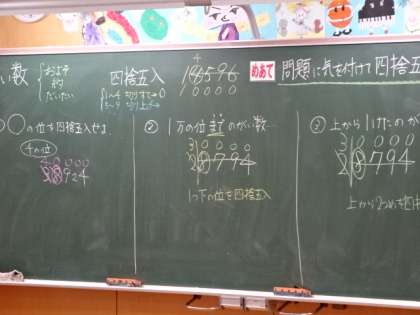 い数
およそ
約
だいたい
四捨五入
1～4 切りすて→0
5～9 切り上げ
4
18596
10000
めあて
問題に気を付けて四捨五
○の位を四捨五入せよ
千の位
0000
38924
② 1万の位までのがい数…
30000
28794
1つ下の位を四捨五入
③ 上から1けたのがい
30000
28794
上から2つめを四